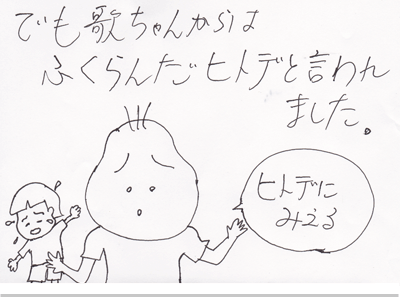 でも歌ちゃんからは
ふくらんだヒトデと言われ
ました。
ヒトデに
みえる